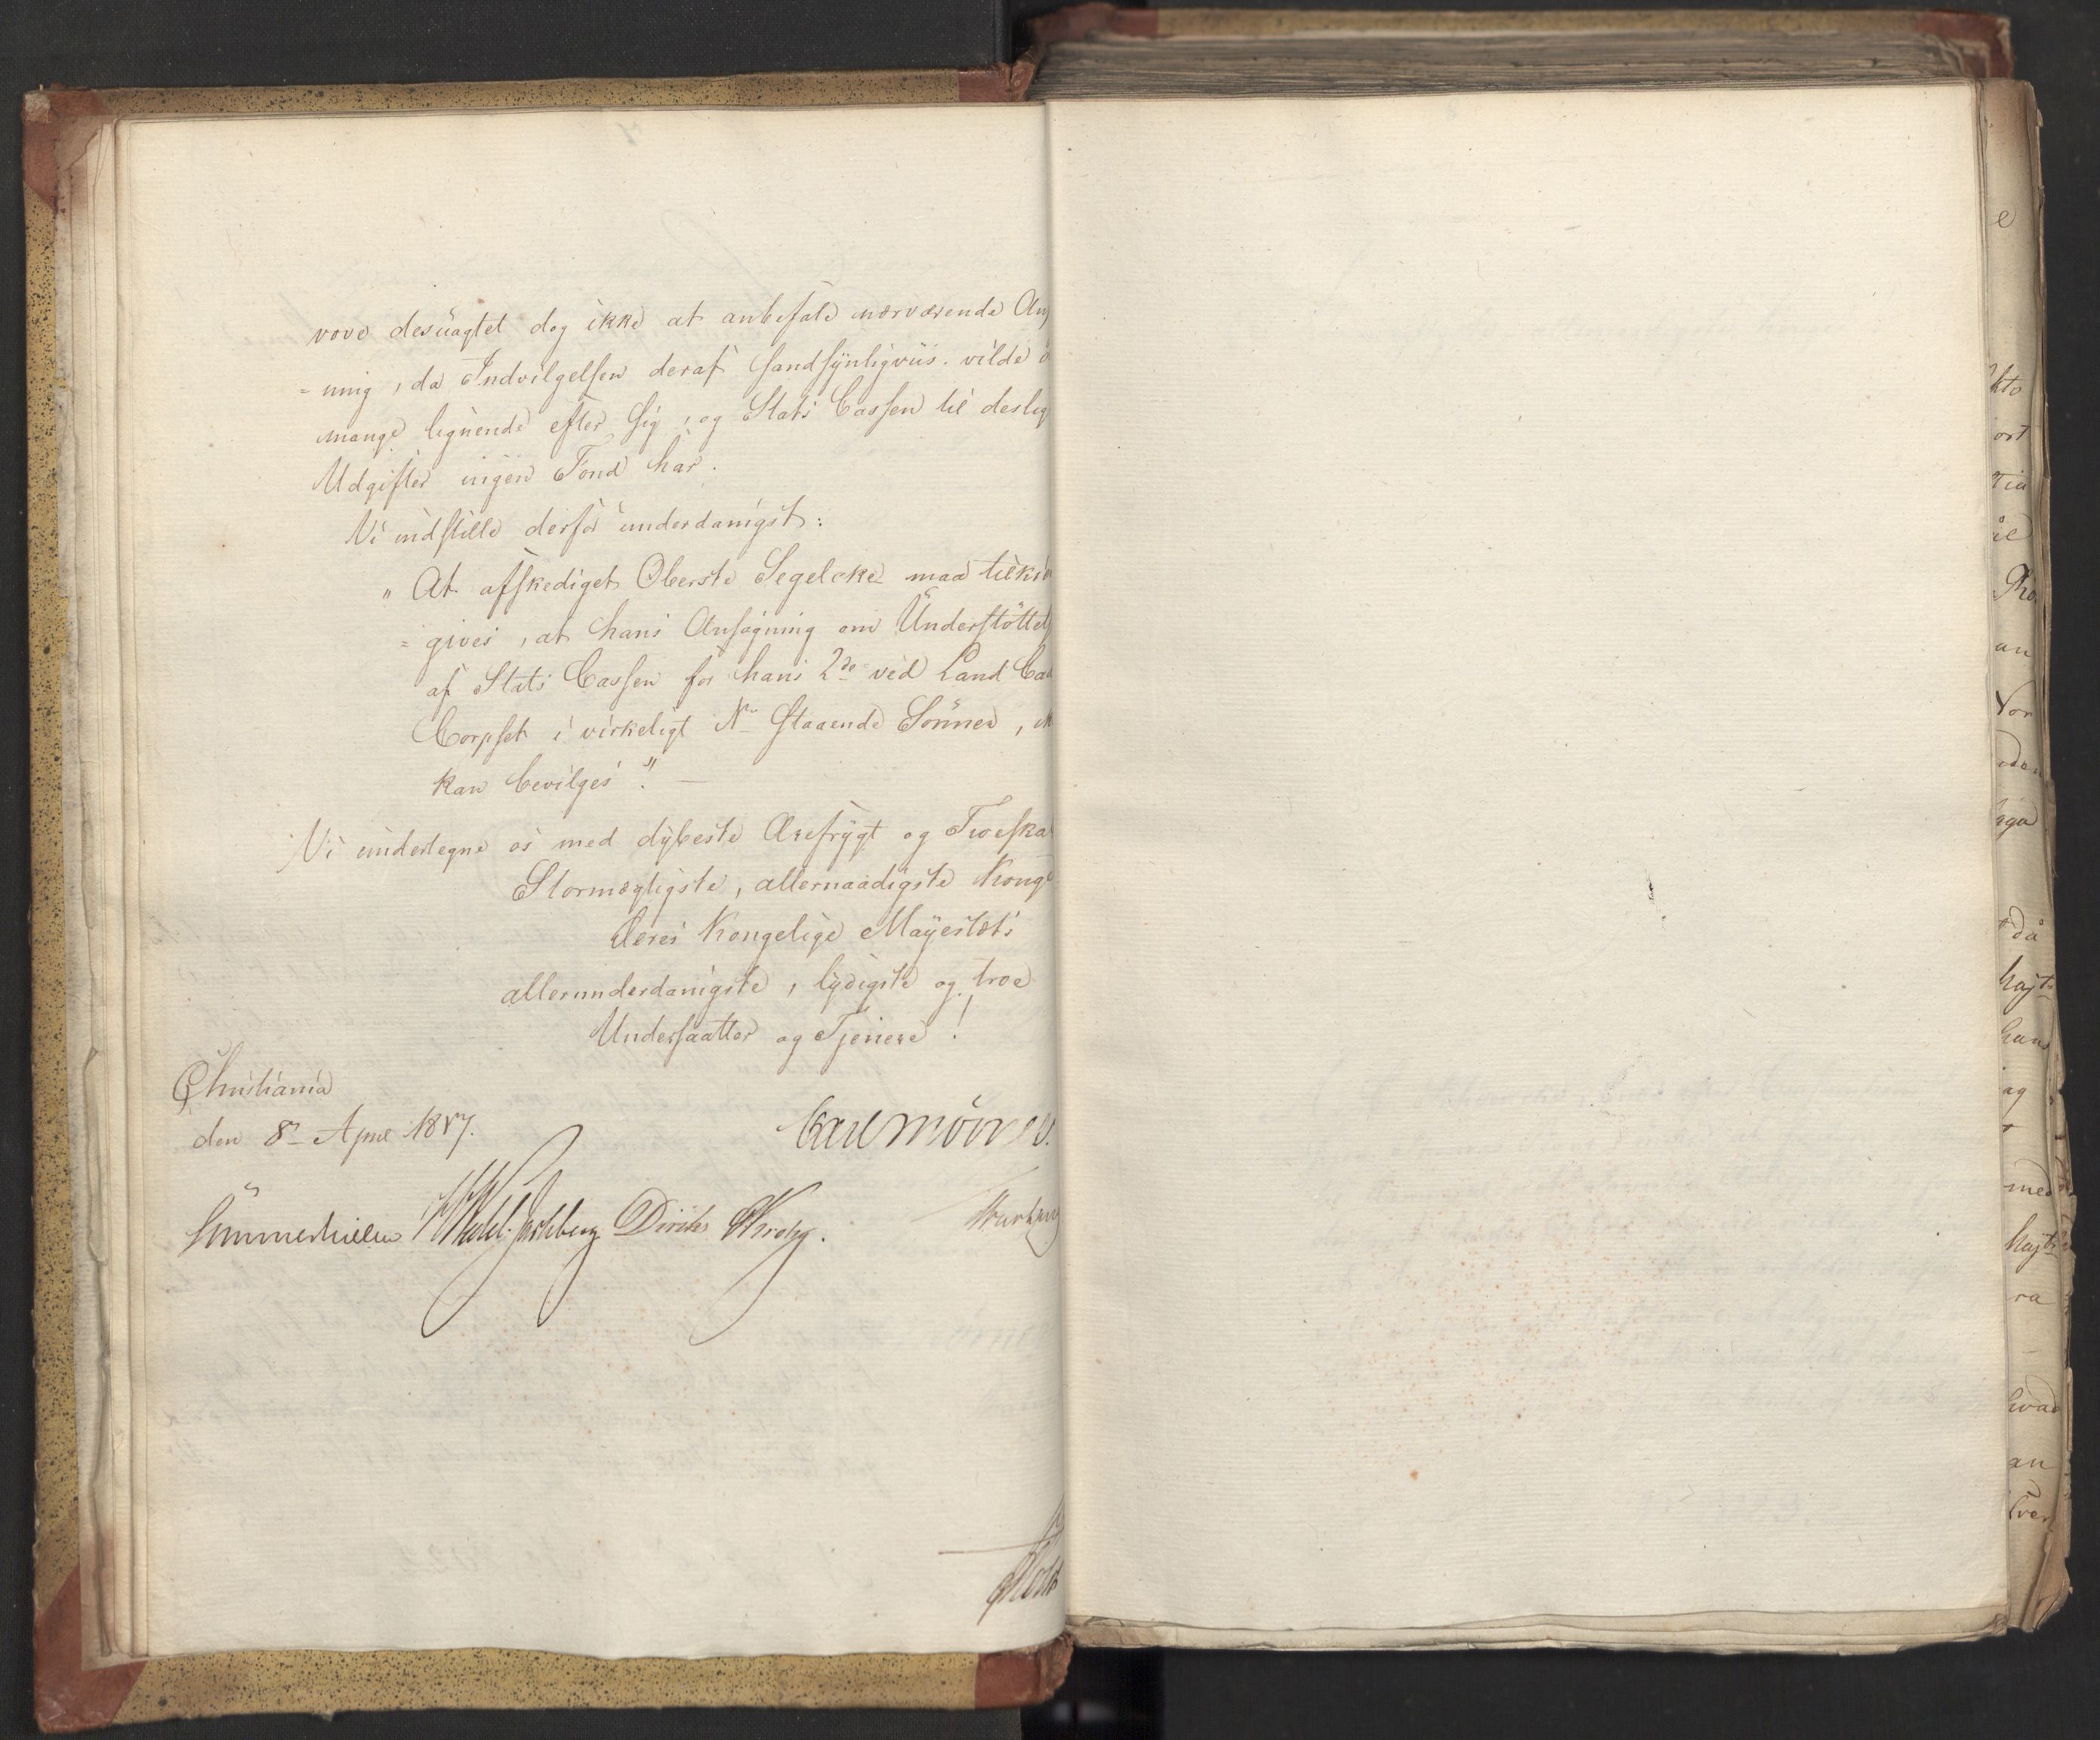 vove desuagtet dog ikke at anbefale nærværende An
= ning, da Indvilgelsen deraf sandsynligviis vilde
mange lignende efter sig, og Stats Cassen til deslig
Udgifter ingen Fond har.
Vi indstille derfor underdanigst:
„ At afskediget Oberste Segelcke maa tilkie
= gives, at hans Ansøgning om Understöttel
af Stats Cassen for hans 2de ved Land Cad
Corpset i virkeligt No staaende Sönner, ik
kan bevilges". —
Vi undertegne os med dybeste Ærefrygt og Troeska
Stormægtigste, allernaadigste Konge
Deres Kongelige Mayestæts
allerunderdanigste, lydigste og troe
Undersaatter og Tjenere!
Christiania
den 8de April 1817.
Carl Mörner.
Sommerhielm Wedel-Jarlsberg Diriks Krohg.
Holst
e
kto
ort
Tia
an
Vor
då
hajts
hans
med
hajts
ra
hvad
an